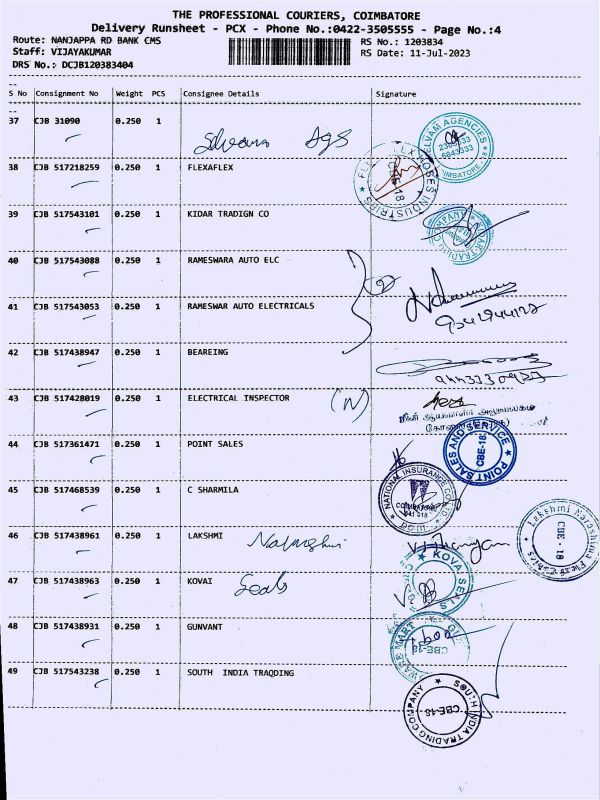 THE PROFESSIONAL COURIERS, COIMBATORE
Delivery Runsheet - PCX - Phone No.:0422-3505555 - Page No.:4
Route: NANJAPPA RD BANK CMS
RS No.: 1203834
Staff: VIJAYAKUMAR
RS Date: 11-Jul-2023
DRS No.: DCJB120383404
S No Consignment No Weight PCS Consignee Details Signature
37 CJB 31090 0.250 1
38 CJB 517218259 0.250 1 FLEXAFLEX
39 CJB 517543101 0.250 1 KIDAR TRADIGN CO
40 CJB 517543088 0.250 1 RAMESWARA AUTO ELC
41 CJB 517543053 0.250 1 RAMESWAR AUTO ELECTRICALS
42 CJB 517438947 0.250 1 BEAREING
43 CJB 517428019 0.250 1 ELECTRICAL INSPECTOR (N)
44 CJB 517361471 0.250 1 POINT SALES
POINT SALES AND SERVICE CBE-18
45 CJB 517468539 0.250 1 C SHARMILA
NATIONAL INSURANCE CO
COIMBATORE
641 018
46 CJB 517438961 0.250 1 LAKSHMI
CBE - 18
47 CJB 517438963 0.250 1 KOVAI Seals
KOVAI SEALS
48 CJB 517438931 0.250 1 GUNVANT
CBE-18
49 CJB 517543238 0.250 1 SOUTH INDIA TRAQDING
SOUTH INDIA TRADING COMPANY
CBE-18